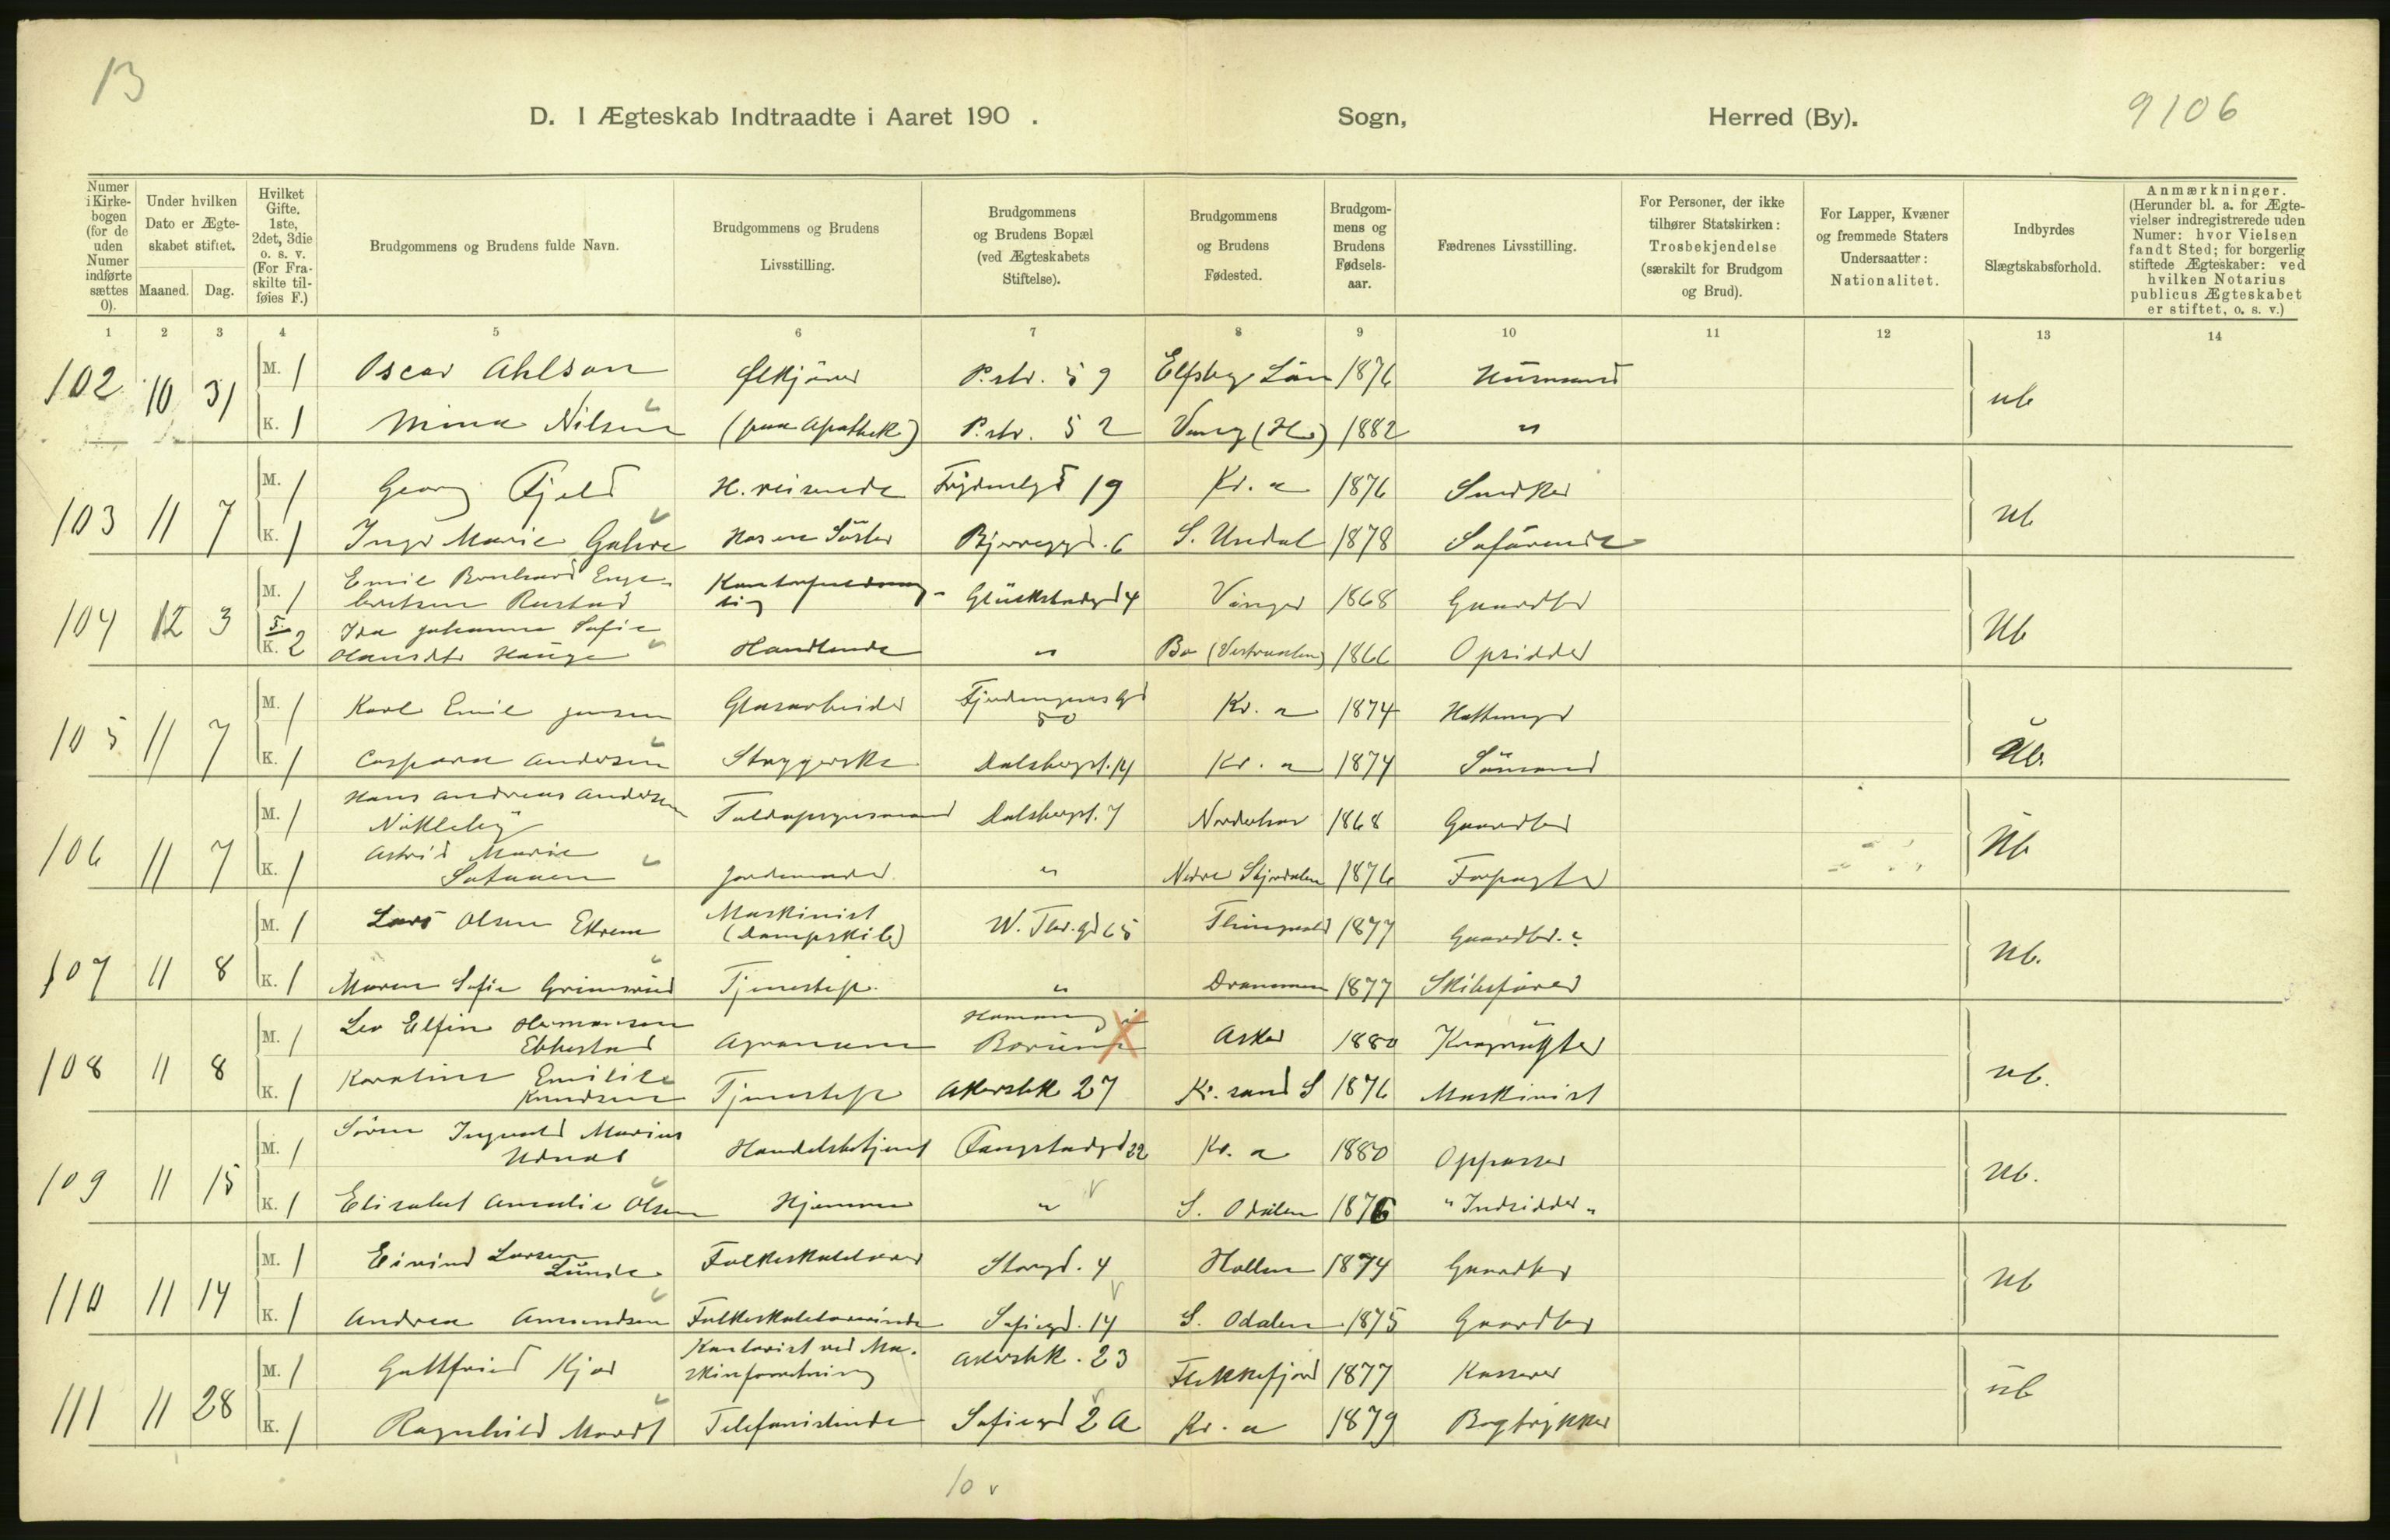 13
D. I Ægteskab Indtraadte i Aaret 190 . Sogn, Herred (By).
9106
Numer i Kirkebogen (for de uden Numer indførte sættes 0).
Under hvilken Dato er Ægteskabet stiftet.
Maaned. Dag.
Hvilket Gifte. 1ste, 2det, 3die o. s. v. (For Fraskilte tilføies F.)
Brudgommens og Brudens fulde Navn.
Brudgommens og Brudens Livsstilling.
Brudgommens og Brudens Bopæl (ved Ægteskabets Stiftelse).
Brudgommens og Brudens Fødested.
Brudgommens og Brudens Fødselsaar.
Fædrenes Livsstilling.
For Personer, der ikke tilhører Statskirken: Trosbekjendelse (særskilt for Brudgom og Brud).
For Lapper, Kvæner og fremmede Staters Undersaatter: Nationalitet.
Indbyrdes Slægtskabsforhold.
Anmærkninger. (Herunder bl. a. for Ægtevielser indregistrerede uden Numer: hvor Vielsen fandt Sted; for borgerlig stiftede Ægteskaber: ved hvilken Notarius publicus Ægteskabet er stiftet, o. s. v.)
1 2 3 4 5 6 7 8 9 10 11 12 13 14
102 10 31 M. 1 Oscar Ahlson Ølkjører P.str. 59 Elfsbg Län 1876 Husmand ub
K. 1 Mina Nilsen (paa Apothek) P.str. 52 Vang (H.) 1882 "
103 11 7 M. 1 Georg Fjeld H.reisende 19 Kr.a 1876 Snedker ub
K. 1 Inga Marie 6 S. Undal 1878 Søfarende
104 12 3 M. 1 Emil Bernhard Enge-
bretsen Rustad Glückstadgd 4 Vinger 1868 Gaardbr Ub
K. 2 Ida Johanne Sofie
Hansdtr Hauge Handlende " Bø (Vesteraalen) 1866 Opsidder
105 11 7 M. 1 Karl Emil Jensen Glasarbeider Fjerdingens Gd
50 Kr.a 1874 Hattemager Ub.
K. 1 Caspara Andersen Strygerske Dalsbergst. 14 Kr.a 1874 Sømand
106 11 7 M. 1 Hans Andreas Andersen
Nökleby Toldopsynsmand Dalsbergst. 7 Norderhov 1868 Gaardbr Ub
K. 1 Astrid Marie
Jordemoder " Nedre Stjørdalen 1876 Forpagter
107 11 8 M. 1 Lars Olsen Ekrem Maskinist
(Dampskib) W. Thr. gd 65 Thingvold 1877 Gaardbr. ? Ub.
K. 1 Maren Sofie Grimsrud Tjenestep. " Drammen 1877 Skibsfører
108 11 8 M. 1 Leo Elfin Hermansen
Ebbestad Agronom Bærum Asker 1880 ub.
K. 1 Karoline Emilie
Knudsen Tjenestep Akersbk 27 Kr.sand S 1876 Maskinist
109 11 15 M. 1 Søren Ingvald Marius
Udnæs Handelsbetjent Langstadgd 22 Kr.a 1880 Oppasser Ub.
K. 1 Elisabet Amalie Olsen Hjemme " S. Odalen 1876 "Indsidder"
110 11 14 M. 1 Eivind Larsen
Lunde Folkeskolelærer Storgd. 4 Hollen 1874 Gaardbr Ub
K. 1 Andrea Amundsen Folkeskolelærerinde Sofiegd. 14 S. Odalen 1875 Gaardbr
111 11 28 M. 1 Gottfried Kjær Kontorist ved Ma-
skinforretning Akersbk. 23 Flekkefjord 1877 Kasserer ub
K. 1 Ragnhild Mordt Telefonistinde Sofiegd 2 a Kr.a 1879 Bogtrykker
10 v